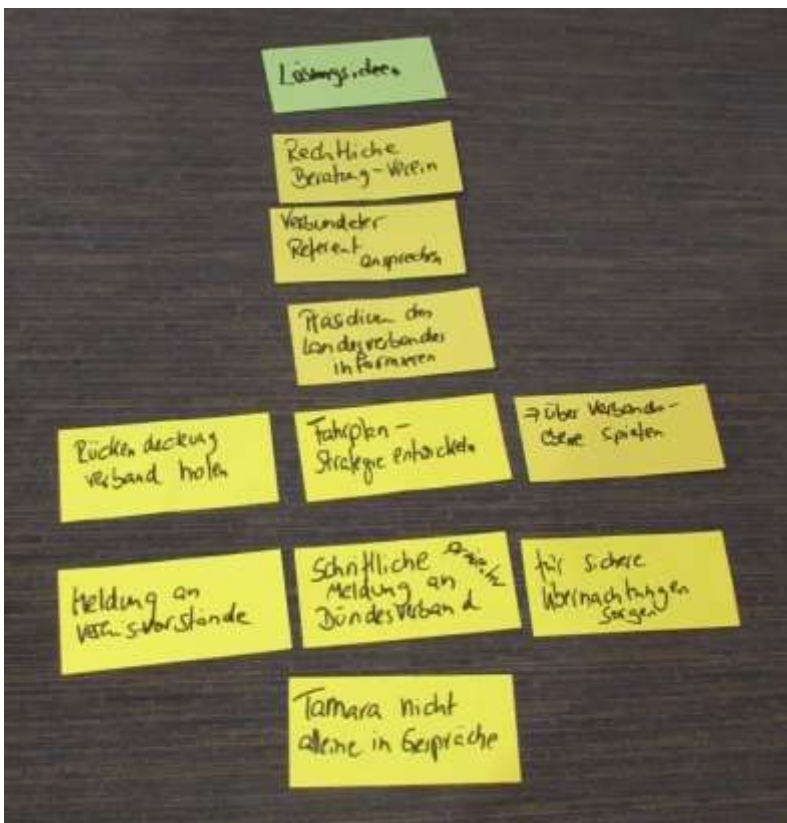 Lösungsideen
Rechtliche
Beratung-Verein
Verbündeter
Referent
ansprechen
Präsidium des
Landesverbandes
informieren
Rückendeckung
verband holen
Fahrplan-
Strategie entwickeln
→ über Verbands-
ebene spielen
Meldung an
Vereinsvorstände
Schriftliche
Meldung an
Bundesverband
für sichere
Übernachtungen
sorgen
Tamara nicht
alleine in Gespräche